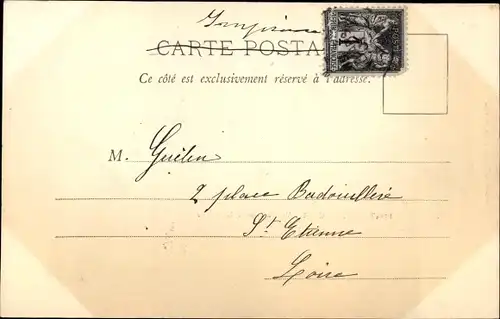 Imprimé
CARTE POSTA
Ce côté est exclusivement réservé à l'adresse.
M. Guélin
2 place Badouillère
St Etienne
Loire